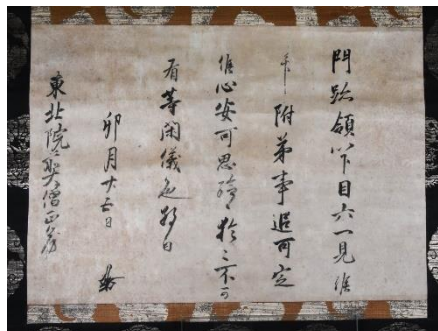 門跡領以下目六一見候
附弟事追可定
候心安可思給於之不可
有等閑儀也
卯月廿六日
東北院僧正房